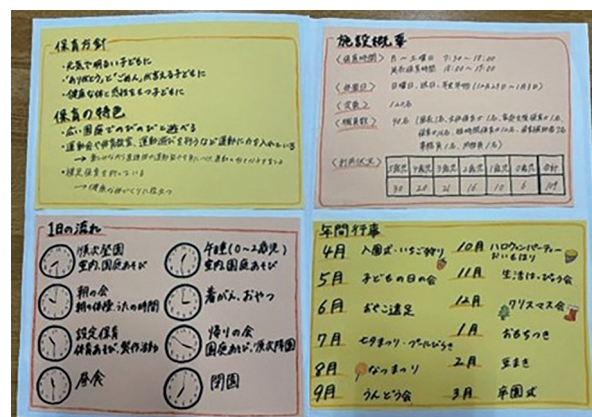 保育方針
・元気で明るい子どもに
・"ありがとう"と"ごめん"が言える子どもに
・健康な体と感性をもつ子どもに
保育の特色
・広い園庭でのびのびと遊べる
・運動会や体育教室、運動遊びを行うなど運動に力を入れている
・裸足保育を行っている
→健康な体づくりに役立つ
施設概要
〈保育時間〉 月〜土曜日 7:30〜18:00
延長保育時間 18:00〜19:00
〈休園日〉 日曜日、祝日、年末年始
〈定員〉 120名
〈職員数〉
〈利用状況〉
5歳児 4歳児 3歳児 2歳児 1歳児 0歳児 合計
30 20 21 16 10
1日の流れ
順次登園
室内、園庭あそび
朝の会
朝の体操、うたの時間
設定保育
体育あそび、製作活動
昼食
午睡(0〜2歳児)
室内、園庭あそび
着がえ、おやつ
帰りの会
園庭あそび、順次降園
閉園
年間行事
4月 入園式・いちご狩り
5月 子どもの日の会
6月 おやこ遠足
7月 七夕まつり・プールびらき
8月 なつまつり
9月 うんどう会
10月 ハロウィンパーティー
おいもほり
11月 生活はっぴょう会
12月 クリスマス会
1月 おもちつき
2月 豆まき
3月 卒園式